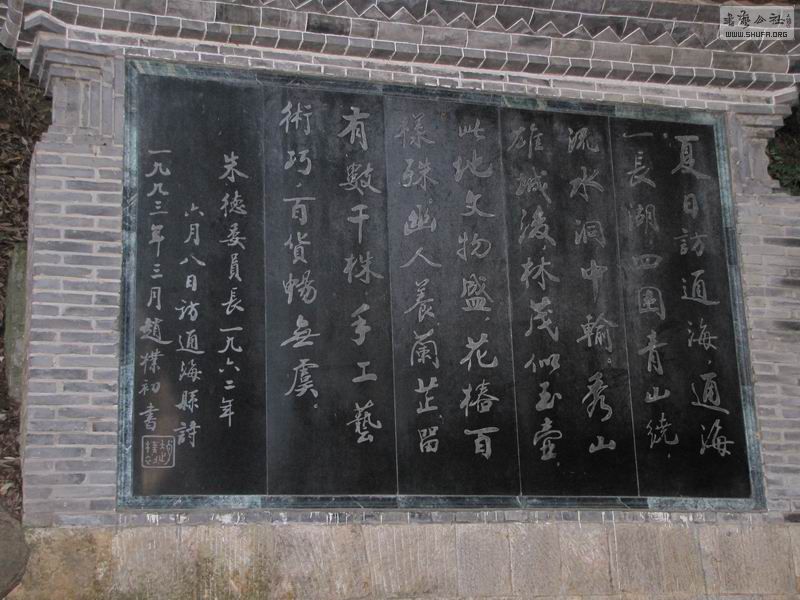 夏日訪通海，通海
一長湖，四圍青山繞，
流水洞中輸，秀山
雄城後，林茂似玉壺，
此地文物盛，花椿百
樣殊，幽人養蘭芷，留
有數千株，手工藝
術巧，百貨暢無虞。
朱德委員長一九六二年
六月八日訪通海縣詩
一九九三年三月趙樸初書
趙樸初
書法公社
WWW.SHUFA.ORG